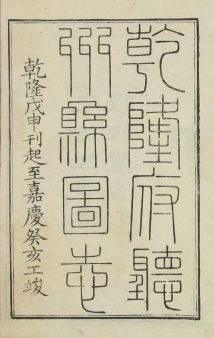 乾隆府廳
州縣圖志
乾隆戊申刊起至嘉慶癸亥工竣